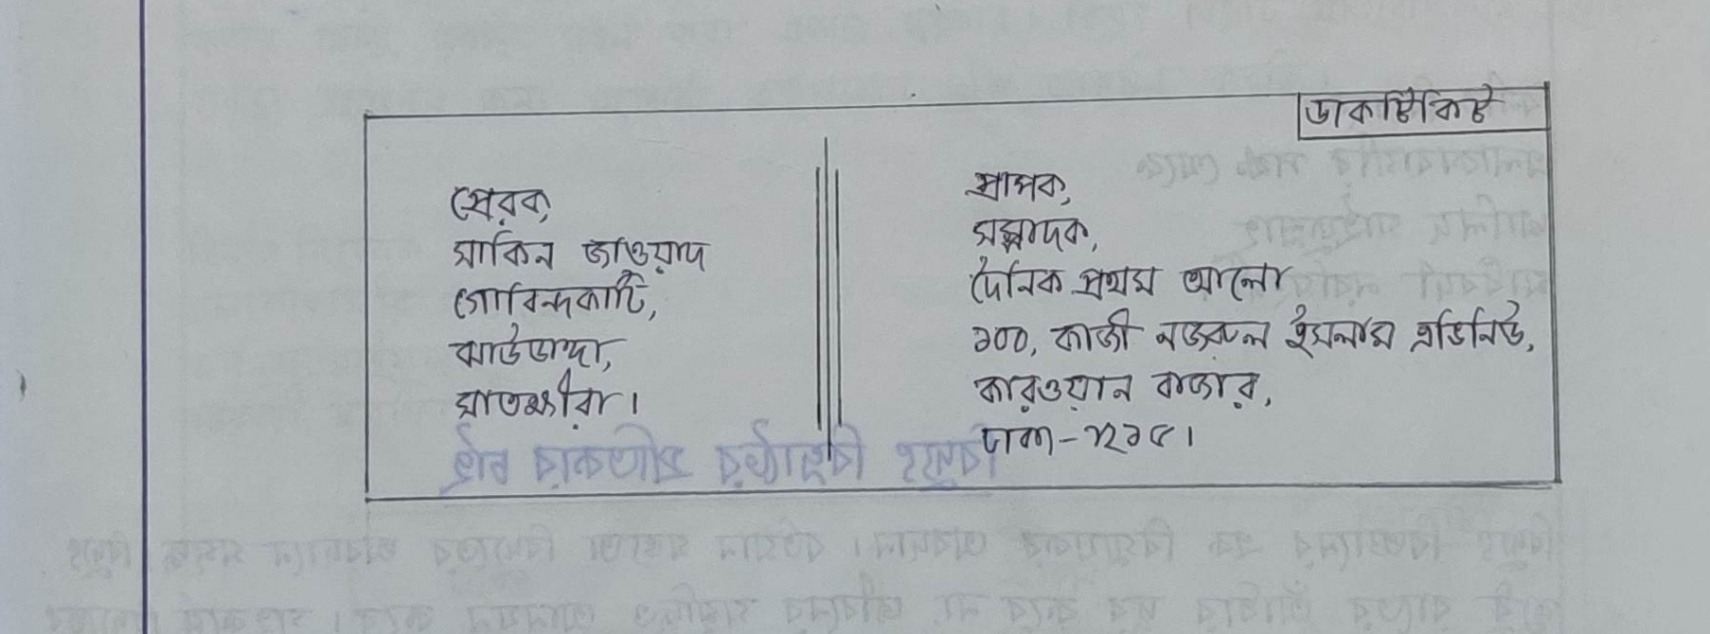 ডাকটিকিট
প্রেরক,
সাকিন জাওয়াদ
গোবিন্দকাটি,
ঝাউডাঙ্গা,
সাতক্ষীরা।
প্রাপক,
সম্পাদক,
দৈনিক প্রথম আলো
১০০, কাজী নজরুল ইসলাম এভিনিউ,
কারওয়ান বাজার,
ঢাকা-১২১৫।